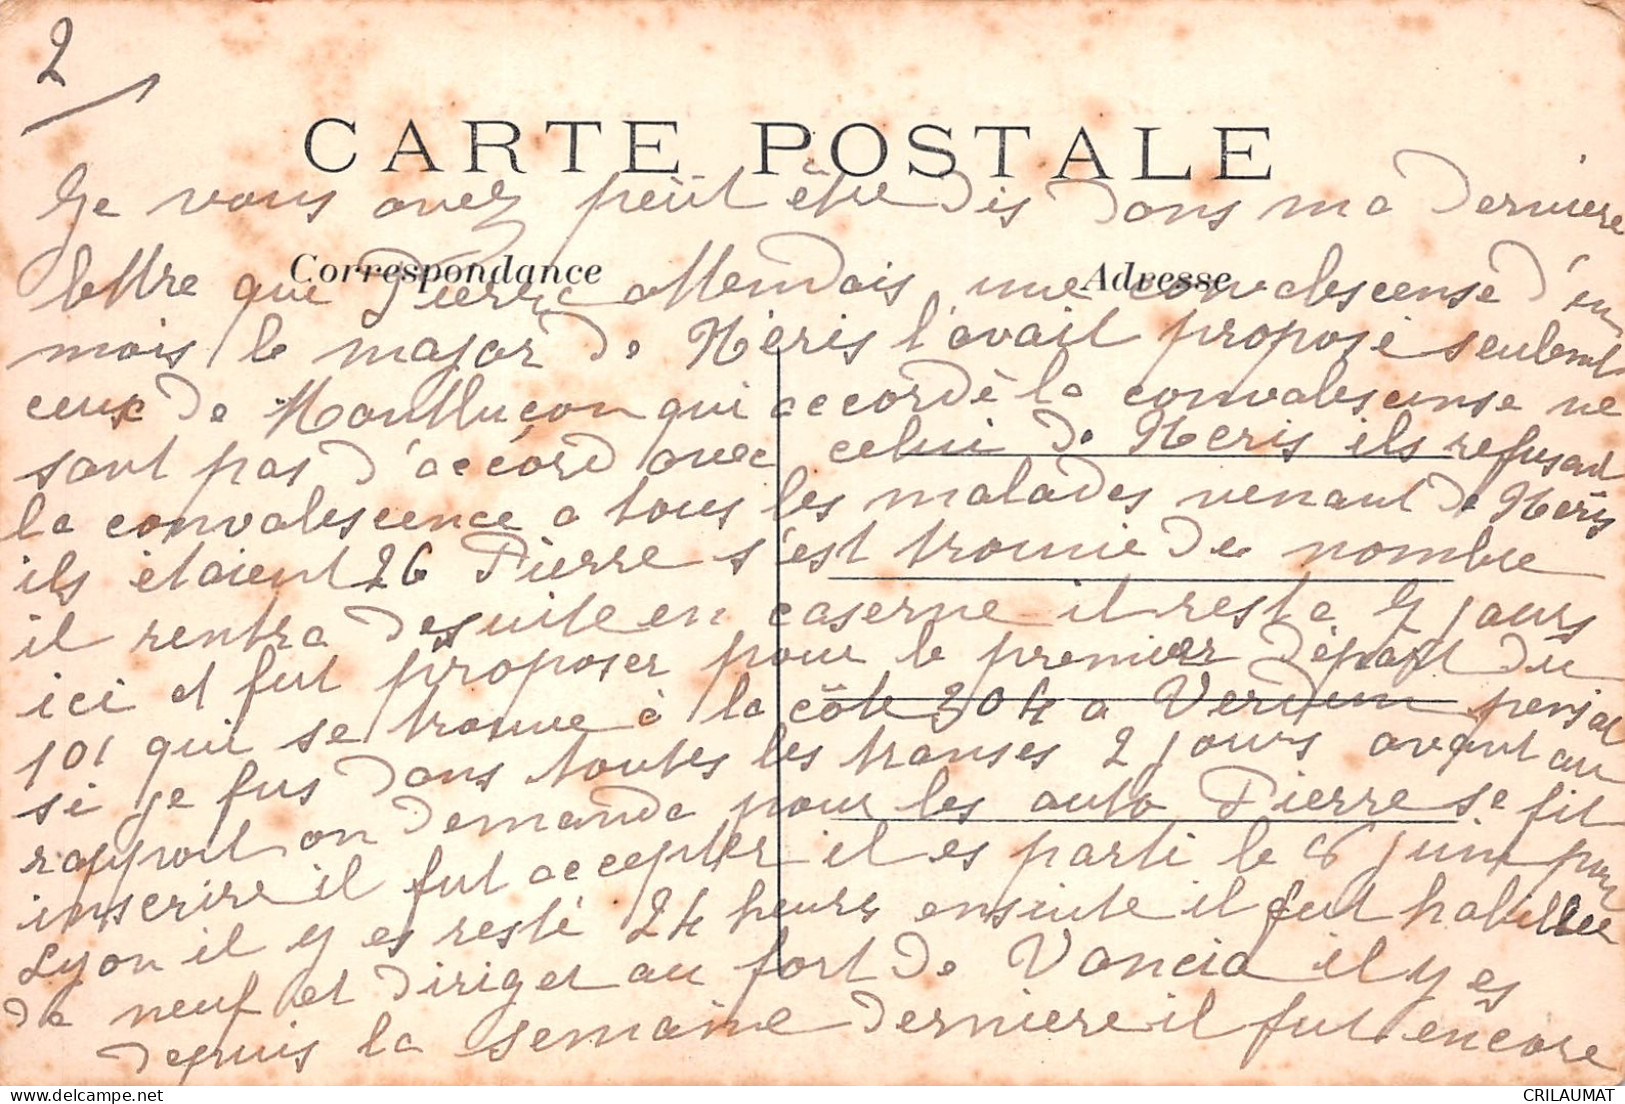 2
CARTE POSTALE
Correspondance
Adresse
Je vous avez peut être dis dans ma derniere
lettre que Pierre attendais une convalescense d'un
mois le major de Néris l'avait proposé seulement
ceux de Montluçon qui accordè la convalescense ne
sont pas d'accord avec celui de Neris ils refusant
la convalescence a tous les malades venant de Néris
ils étaient 26 Pierre s'est trouvie de nombre
il rentra desuite en caserne il resta 5 jours
ici et fut proposer pour le premier départ du
101 qui se trouve à la côte 304 a Verdun pensee
si je fus dans toutes les transes 2 jours avant au
rapport on demanda pour les auto Pierre se fit
inscrire il fut accepter il es parti le 6 juin pour
Lyon il y es resté 24 heures ensuite il fut habillee
de neuf et diriget au fort de Vancia il y es
depuis la semaine derniere il fut encore
www.delcampe.net
CRILAUMAT